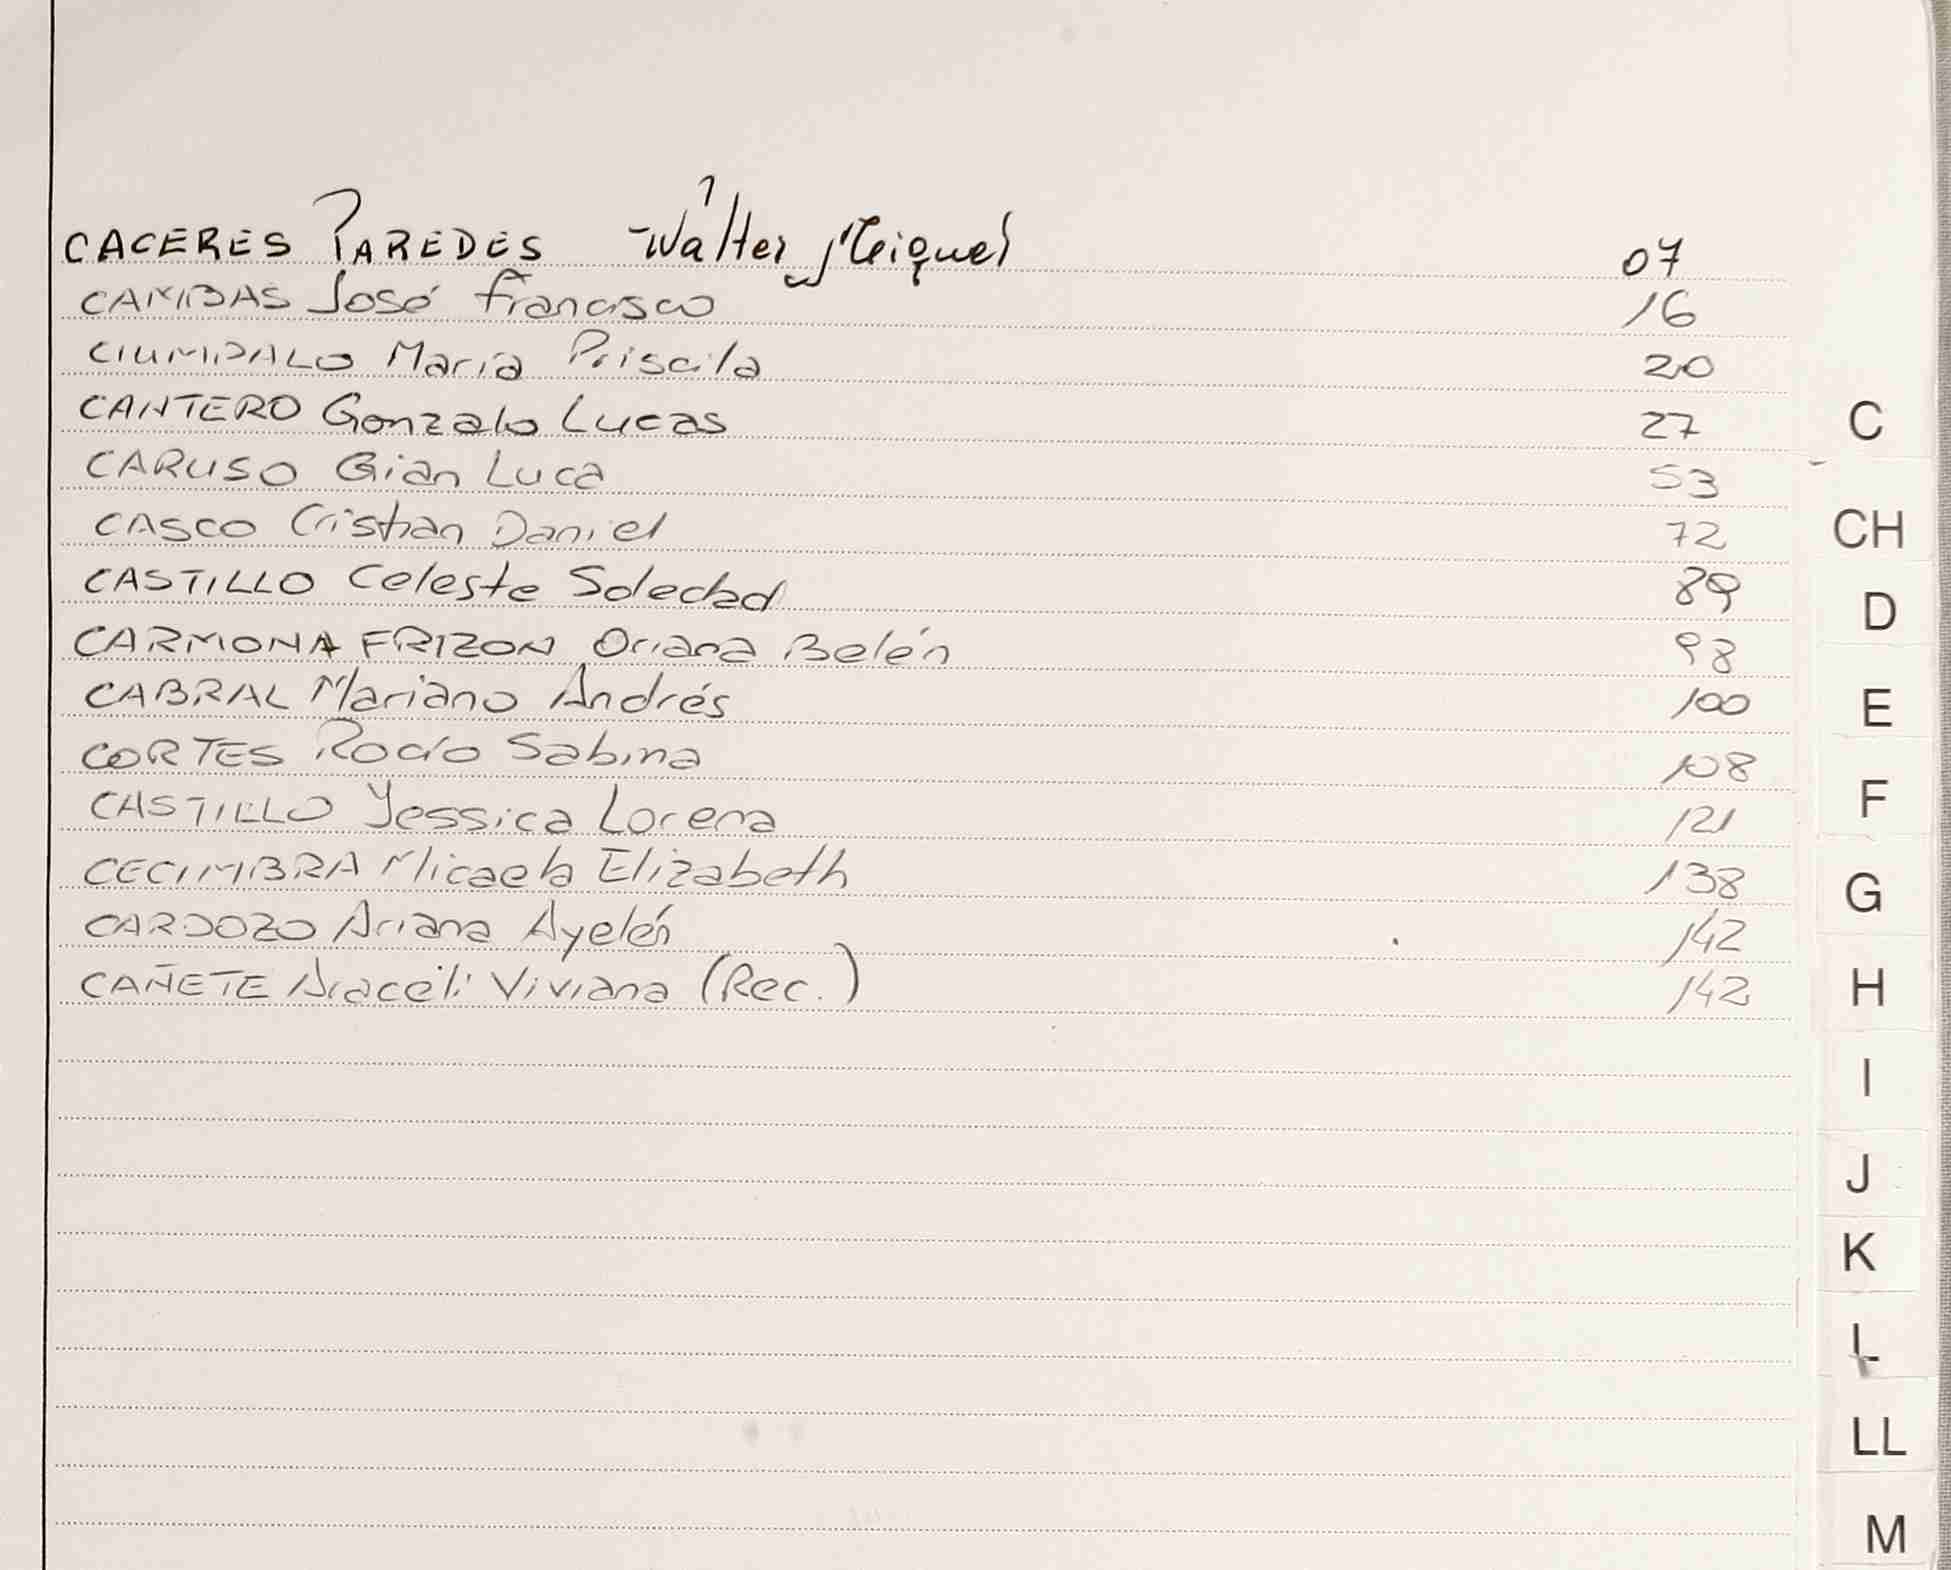 CACERES PAREDES Walter Miguel 07
CAMBAS José Francisco 16
MARÍA Priscila 20
CANTERO Gonzalo Lucas 27
CARUSO Gian Luca 53
CASCO Cristian Daniel 72
CASTILLO Celeste Soledad 89
CARMONA FRIZON Oriana Belén 98
CABRAL Mariano Andrés 100
CORTES Rocío Sabina 108
CASTILLO Yessica Lorena 121
CECIMBRA Micaela Elizabeth 138
CARDOZO Ariana Ayelén 142
CAÑETE Araceli Viviana (Rec.) 142
C
CH
D
E
F
G
H
I
J
K
L
LL
M